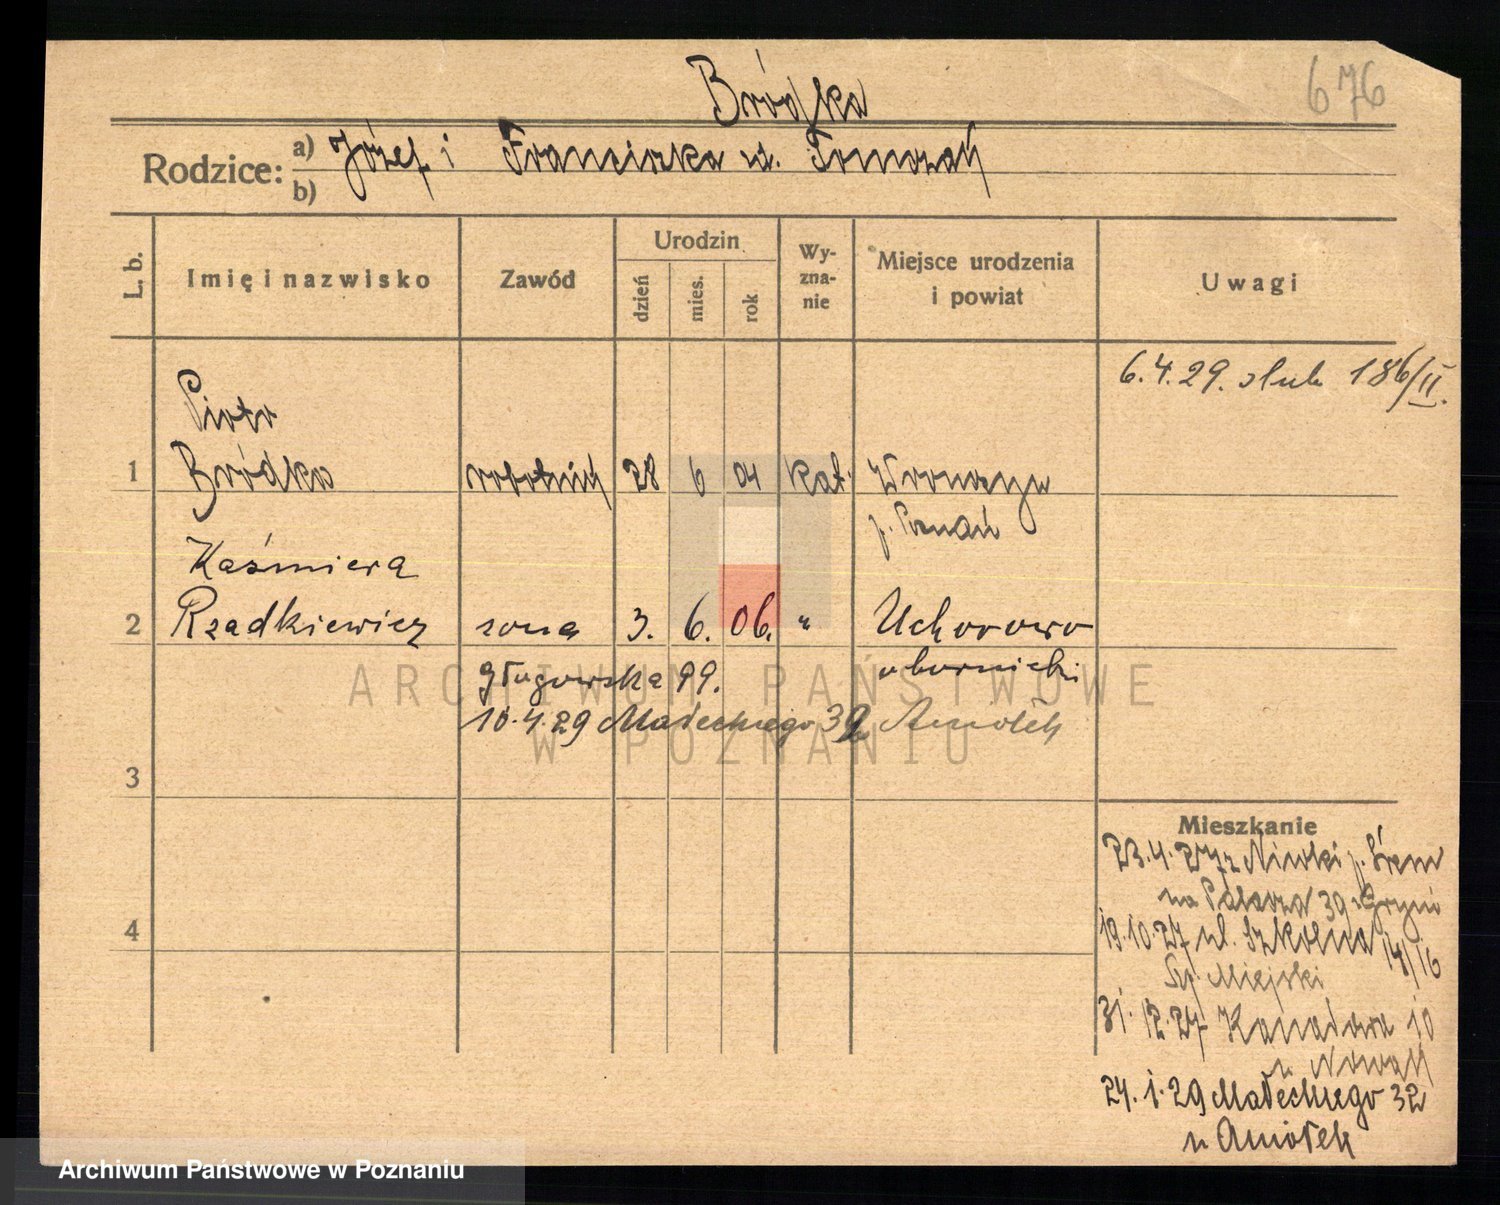 Bródka
676
Rodzice: a) Józef i Franciszka
b)
L. b.
Imię i nazwisko
Zawód
Urodzin
dzień
mies.
rok
Wy-
zna-
nie
Miejsce urodzenia
i powiat
Uwagi
6.4.29. slub 186/II.
Piotr
1 Bródka robotnik 28 6 04 kat.
p. Poznań
Kaśmiera
2 Rzadkiewicz zona 3. 6. 06. " Uchorowo
głogowska 99. obornicki
10.4.29 Małeckiego 32 Aniołek
3
4
Mieszkanie
23.4.27 z Niwki p. Śrem
na 39
19.10.27 ul. Szkolna 14/16
Szp. Miejski
31.12.27 Kanałowa 10
u Nowak
24.1.29 Małeckiego 32
u Aniołek
ARCHIWUM PAŃSTWOWE
W POZNANIU
Archiwum Państwowe w Poznaniu